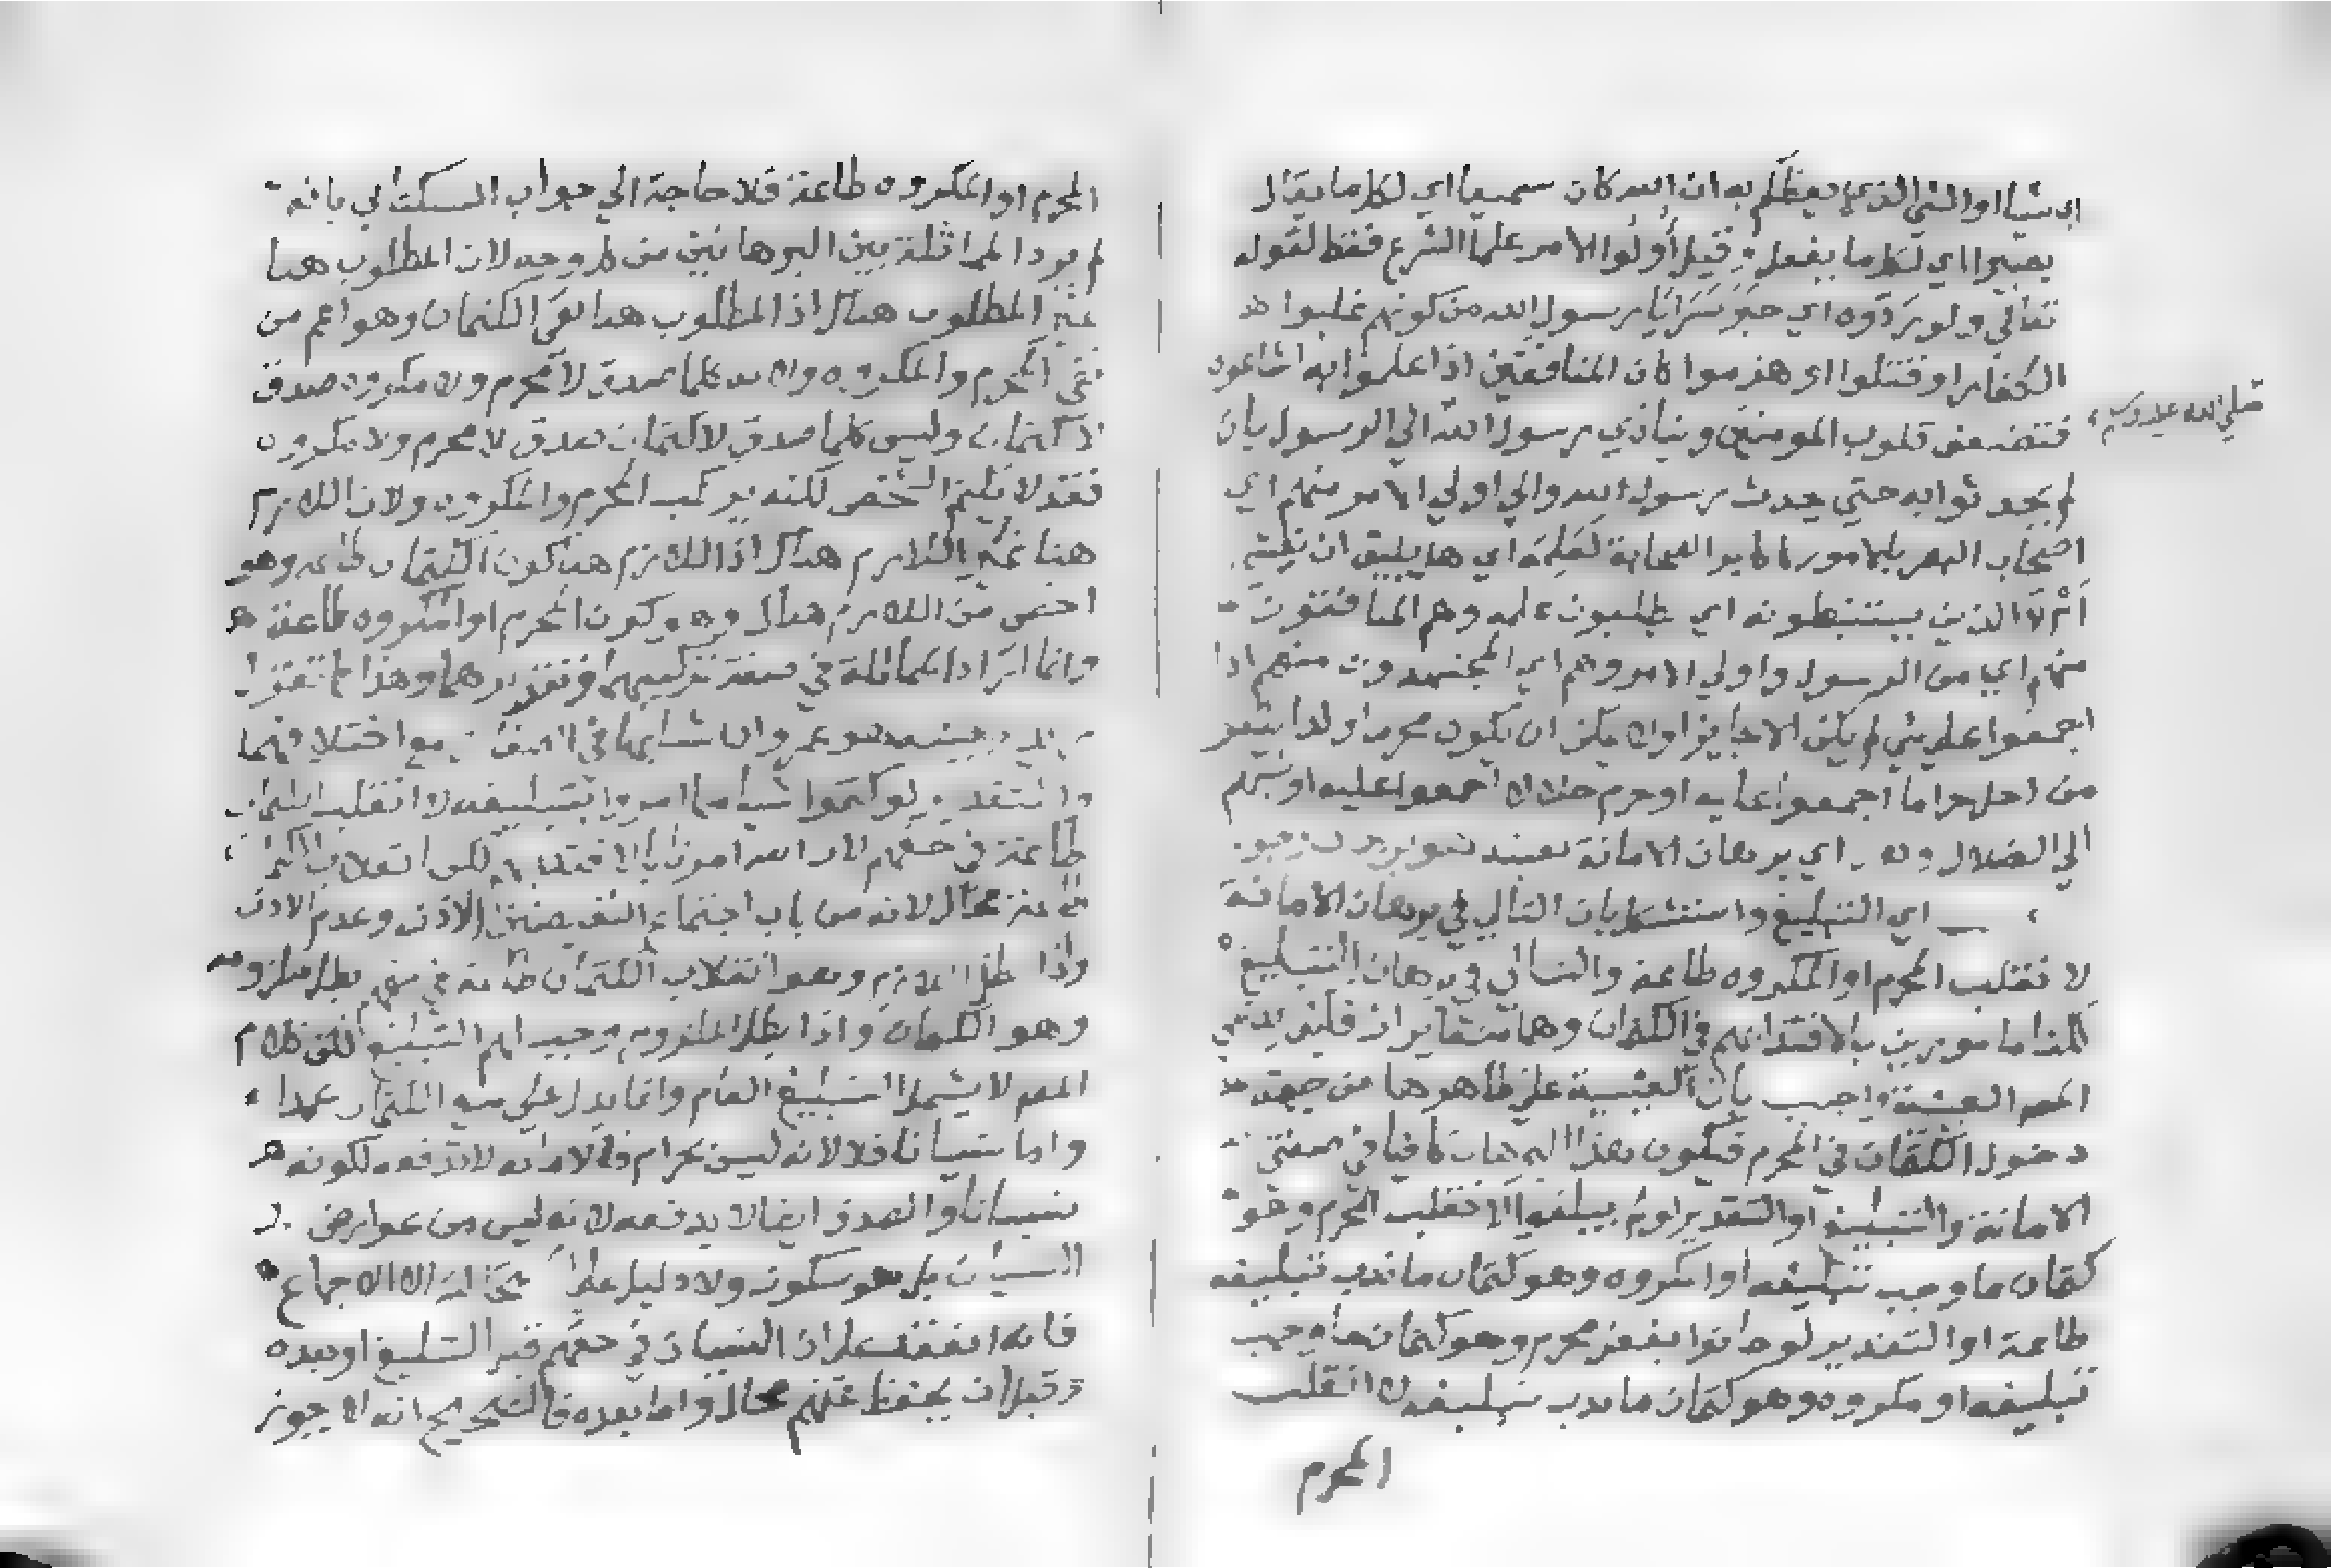 اي شيا او الشي الذي يعظكم به ان الله كان سميعا اي لكل ما يقال
بصيرا اي لكل ما يفعل وقيل أولوا الامر علما الشرع فقط لقوله
تعالي ولو ردوه اي خبر سرايا رسول الله من كونهم غلبوا
الكفار او قتلوا او هزموا كان المنافقين اذا علموا به اشاعوه
فتضعف قلوب المومنين ويتاذي رسول الله الي الرسول بان
صلي الله عليه وسلم
لم يحدثوا به حتي يحدث رسول الله والي اولي الامر منهم اي
اصحاب البصر بالامور كاكابر الصحابة لعلمه اي هل يليق ان
أم لا الذين يستنبطونه اي يطلبون علمه وهم المنافقون
منهم اي من الرسول واولي الامر وهم اي المجتهدون منهم اذا
اجمعوا علي شي لم يكن الا جايزا ولا يمكن ان يكون محرما ولذا
من احل حراما اجمعوا عليه او حرم حلالا اجمعوا عليه او نسبهم
الي الضلال اي برهان الامانة بعينه هو برهان وجوب
اي التبليغ واستشكل بان التالي في برهان الامانة
لا نقلب المحرم او المكروه طاعة والتالي في برهان التبليغ
لكنا مامورين بالاقتدا بهم في الكتمان وهما متغايران فليس
المص العينية واجيب بان العينية علي ظاهرها من جهة
دخول الكتمان في المحرم فيكون هذا البرهان كافيا في صفتي
الامانة والتبليغ او التقدير لو لم يبلغوا لا نقلب المحرم وهو
كتمان ما وجب تبليغه او المكروه وهو كتمان ما ندب تبليغه
طاعة او التقدير لو خانوا بفعل محرم وهو كتمان ما وجب
تبليغه او مكروه وهو كتمان ما ندب تبليغه لا انقلب
المحرم
المحرم او المكروه طاعة فلا حاجة الي جواب السكتاني بانه
لم يرد المماثلة بين البرهانين من كل وجه لان المطلوب هنا
غير المطلوب هناك اذ المطلوب هنا نفي الكتمان وهو اعم من
نفي المحرم والمكروه ولا بد كلما صدق لا محرم ولا مكروه صدق
لا كتمان وليس كلما صدق لا كتمان صدق لا محرم ولا مكروه
فقد لا يكتم الشخص لكنه يركب المحرم والمكروه ولان اللازم
هنا غير اللازم هناك اذ اللازم هنا كون الكتمان طاعة وهو
اخص من اللازم هناك وهو كون المحرم او المكروه طاعة
وانما اراد المماثلة في صفة تركيبهما وتقديرهما وهذا كما تقول
زيد بعينه هو عمرو اذا تشابها في الصفات مع اختلافهما
والتقدير لو كتموا شيا مما امروا بتبليغه لا انقلب الكتمان
طاعة في حقهم لان الله امرنا بالاقتدا بهم لكن انقلاب الكتمان
طاعة محال لانه من باب اجتماع النقيضين الاذن وعدم الاذن
واذا بطل اللازم وهو انقلاب الكتمان طاعة في حقهم بطل ملزومه
وهو الكتمان واذا بطل الملزوم وجب لهم التبليغ لكن كلام
المص لا يشمل التبليغ العام وانما يدل علي منع الكتمان عمدا
واما نسيانا فلا لانه ليس بحرام فالامانة لا تدفعه لكونه
نسيانا والصدق ايضا لا يدفعه لانه ليس من عوارض
النسيان بل هو سكوته ولا دليل علي استحالته الا الاجماع
فانه انعقد علي ان النسيان في حقهم قبل التبليغ او بعده
وقبل ان يحفظ عنهم محال واما بعده فالصحيح انه لا يجوز